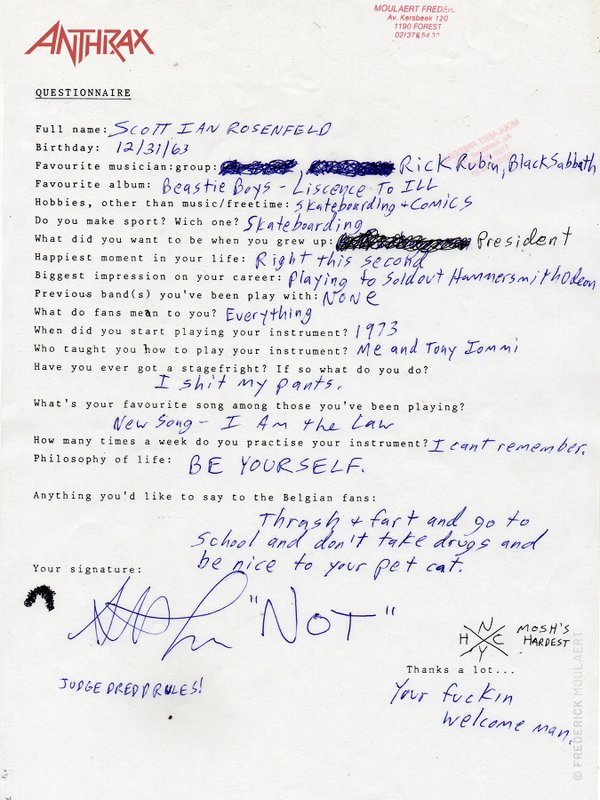 ANTHRAX
MOULAERT FREDER.
Av. Kersbeek 120
1190 FOREST
02/376 54 3
QUESTIONNAIRE
Full name: SCOTT IAN ROSENFELD
Birthday: 12/31/63
Favourite musician:group: , Rick Rubin, Black Sabbath
Favourite album: Beastie Boys - Liscence To ILL
Hobbies, other than music/freetime: skateboarding + COMICS
Do you make sport? Wich one? Skateboarding
What did you want to be when you grew up: President
Happiest moment in your life: Right this second
Biggest impression on your career: Playing to Soldout Hammersmith Odeon
Previous band(s) you've been play with: NONE
What do fans mean to you? Everything
When did you start playing your instrument? 1973
Who taught you how to play your instrument? Me and Tony Iommi
Have you ever got a stagefright? If so what do you do?
I shit my pants.
What's your favourite song among those you've been playing?
New Song - I Am the Law
How many times a week do you practise your instrument? I cant remember.
Philosophy of life: BE YOURSELF.
Anything you'd like to say to the Belgian fans:
Thrash + fart and go to
school and don't take drugs and
be nice to your pet cat.
Your signature:
"NOT"
N
H C
Y
MOSH'S
HARDEST
Thanks a lot...
JUDGE DREDD RULES!
Your fuckin
welcome man.
© FREDERICK MOULAERT